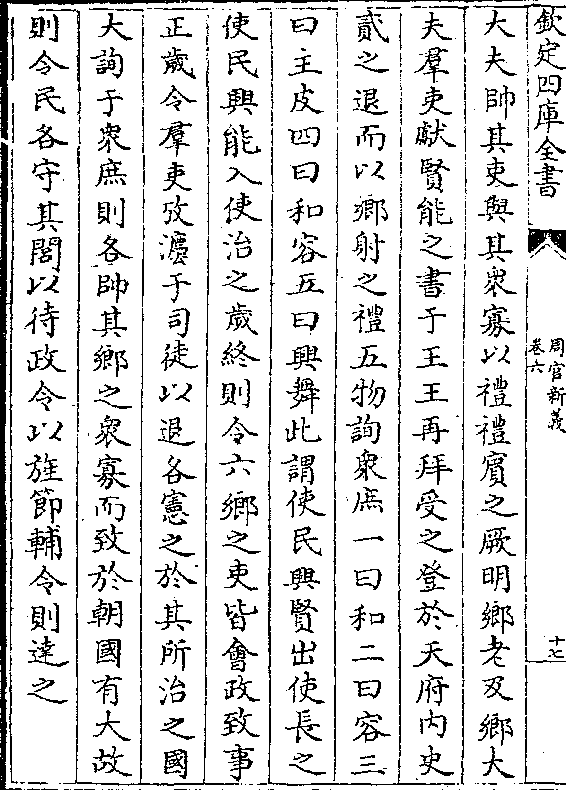 欽定四庫全書
周官新義
卷六
十七
大夫帥其吏與其衆寡以禮禮賔之厥明鄉老及鄉大
夫羣吏獻賢能之書于王王再拜受之登於天府内史
貳之退而以鄉射之禮五物詢衆庶一曰和二曰容三
曰主皮四曰和容五曰興舞此謂使民興賢出使長之
使民興能入使治之歲終則令六鄉之吏皆會政致事
正歲令羣吏攷灋于司徒以退各憲之於其所治之國
大詢于衆庶則各帥其鄉之衆寡而致於朝國有大故
則令民各守其閭以待政令以旌節輔令則達之